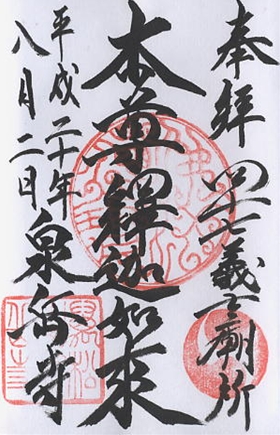 奉拝
四十七義士廟所
本尊釋迦如來
平成二十年
八月二日
泉岳寺